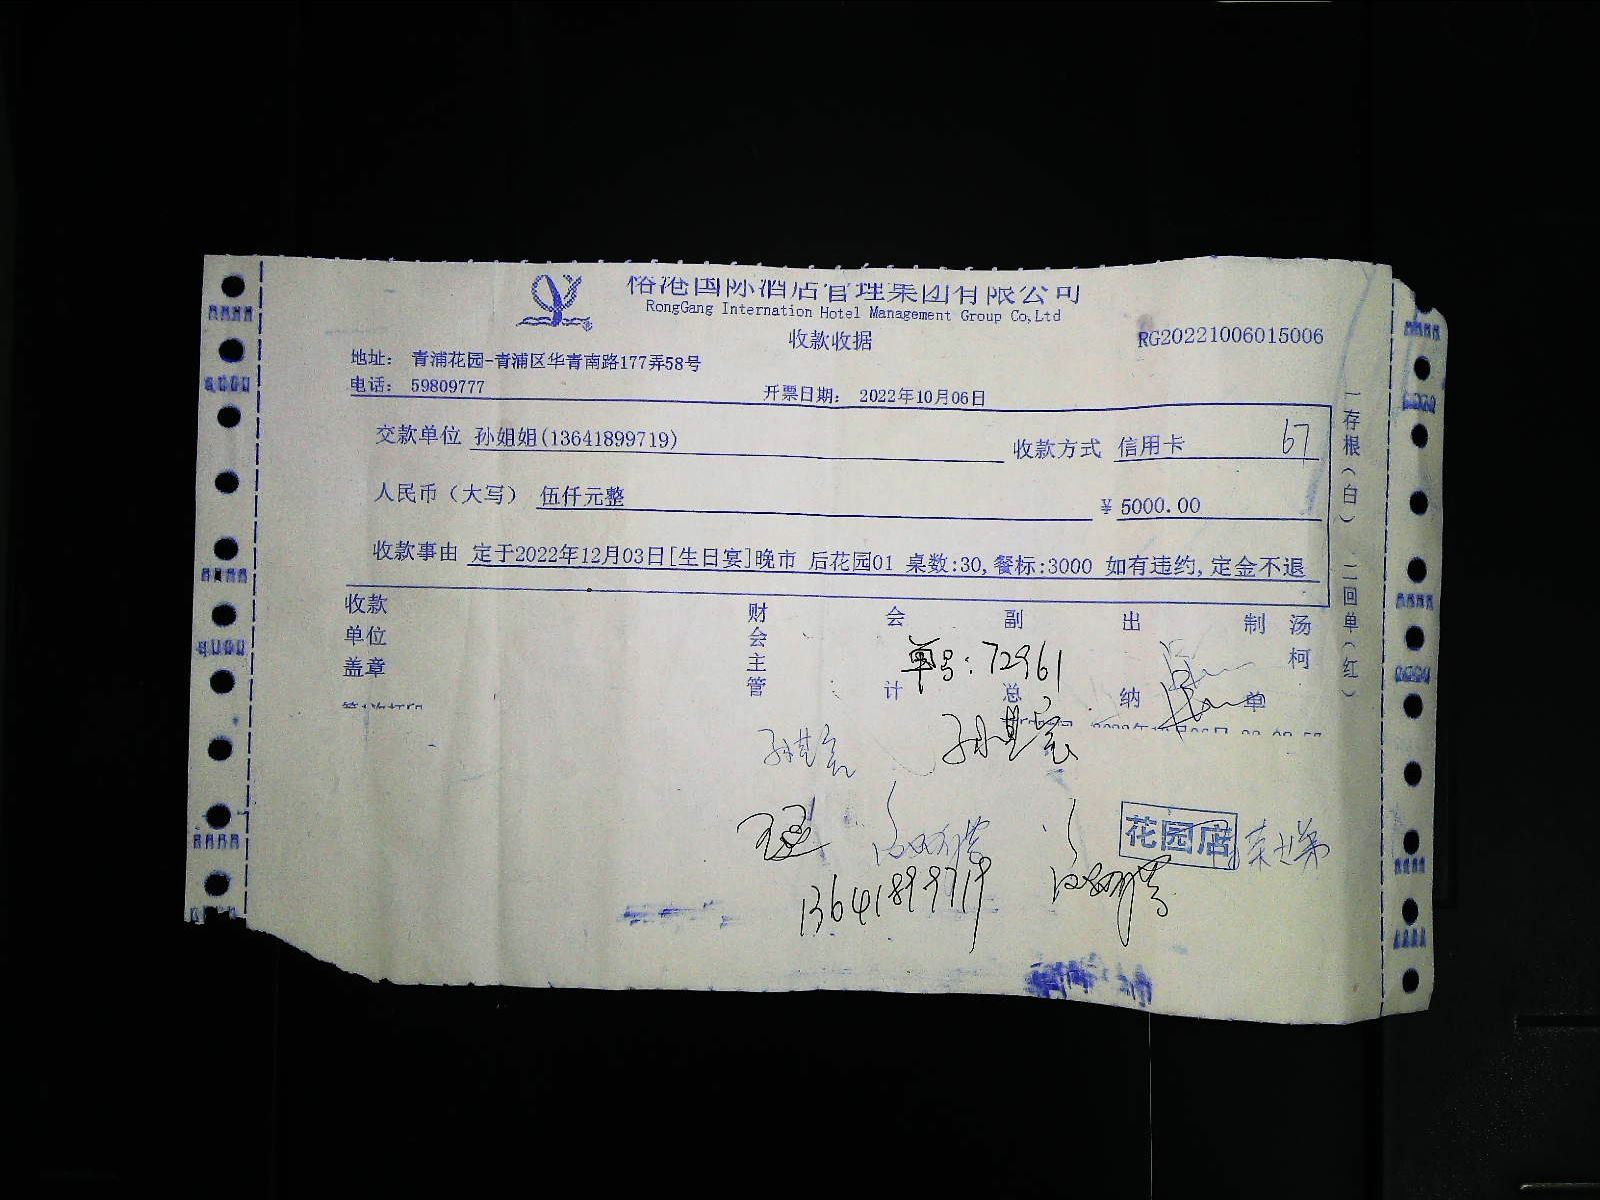 榕港国际酒店管理集团有限公司
RongGang Internation Hotel Management Group Co,Ltd
收款收据
RG20221006015006
地址： 青浦花园-青浦区华青南路177弄58号
电话： 59809777
开票日期： 2022年10月06日
交款单位 孙姐姐(13641899719)
收款方式 信用卡 67
人民币（大写） 伍仟元整
￥ 5000.00
收款事由 定于2022年12月03日[生日宴]晚市 后花园01 桌数:30,餐标:3000 如有违约,定金不退
一存根（白） 二回单（红）
收款单位盖章
财会主管
会计
副总
出纳
制单
汤柯
单号:72961
花园店
13641899719